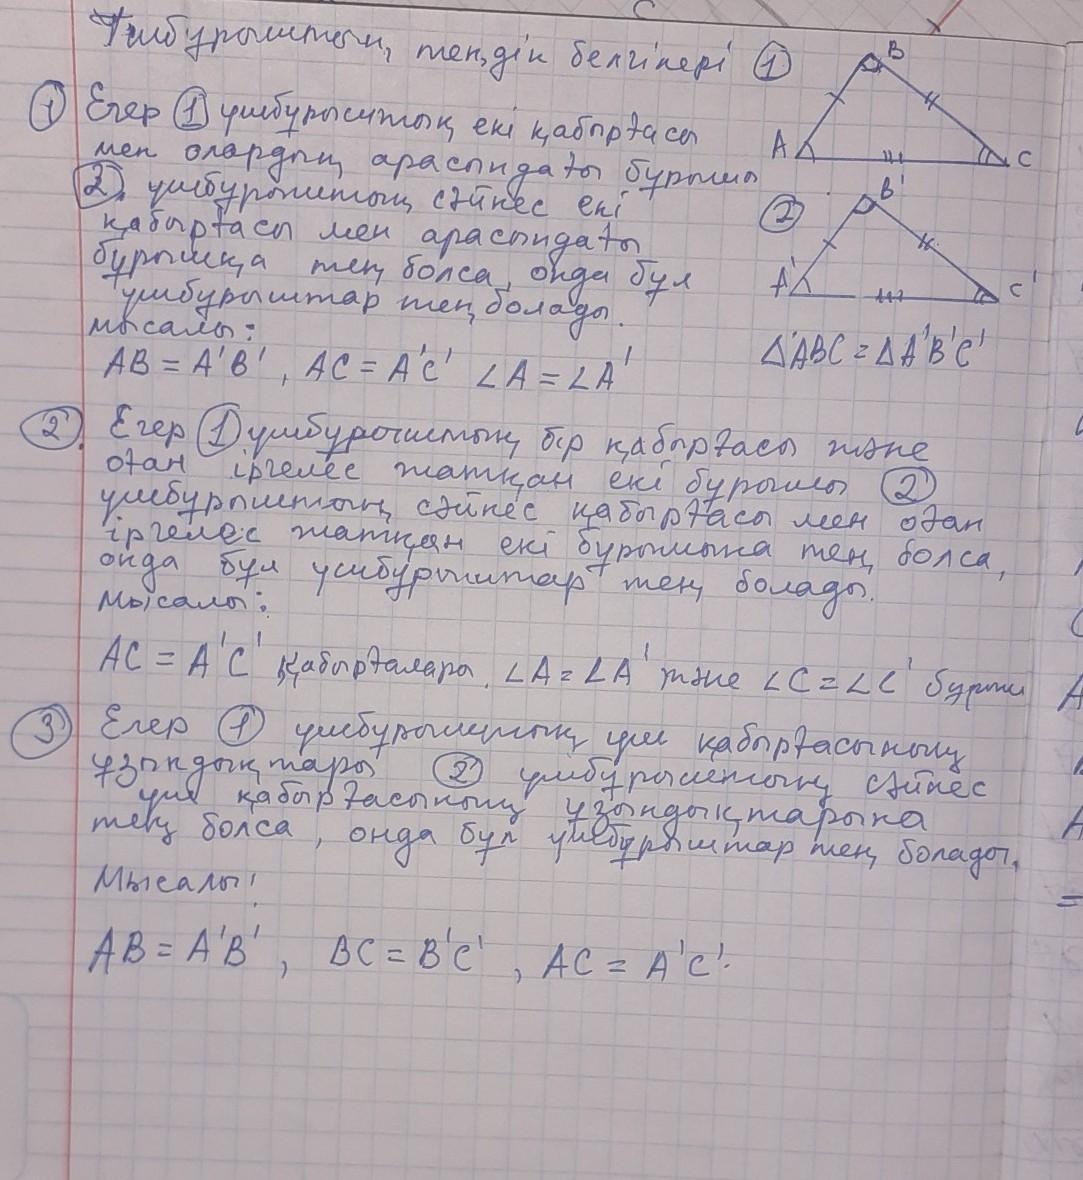 Үшбұрыштың теңдік белгілері ①
B
① Егер ① үшбұрыштың екі қабырғасы
A C
мен олардың арасындағы бұрышы
② үшбұрыштың сәйкес екі
② B'
қабырғасы мен арасындағы
бұрышқа тең болса, онда бұл
A' C'
үшбұрыштар тең болады.
мысалы:
ΔABC = ΔA'B'C'
AB = A'B' , AC = A'C' ∠A = ∠A'
② Егер ① үшбұрыштың бір қабырғасы және
оған іргелес жатқан екі бұрышы ②
үшбұрыштың сәйкес қабырғасы мен оған
іргелес жатқан екі бұрышына тең болса,
онда бұл үшбұрыштар тең болады.
Мысалы:
AC = A'C' қабырғалары, ∠A = ∠A' және ∠C = ∠C' бұрыш
③ Егер ① үшбұрыштың үш қабырғасының
ұзындықтары ② үшбұрыштың сәйкес
үш қабырғасының ұзындықтарына
тең болса, онда бұл үшбұрыштар тең болады,
Мысалы:
AB = A'B' , BC = B'C' , AC = A'C'.